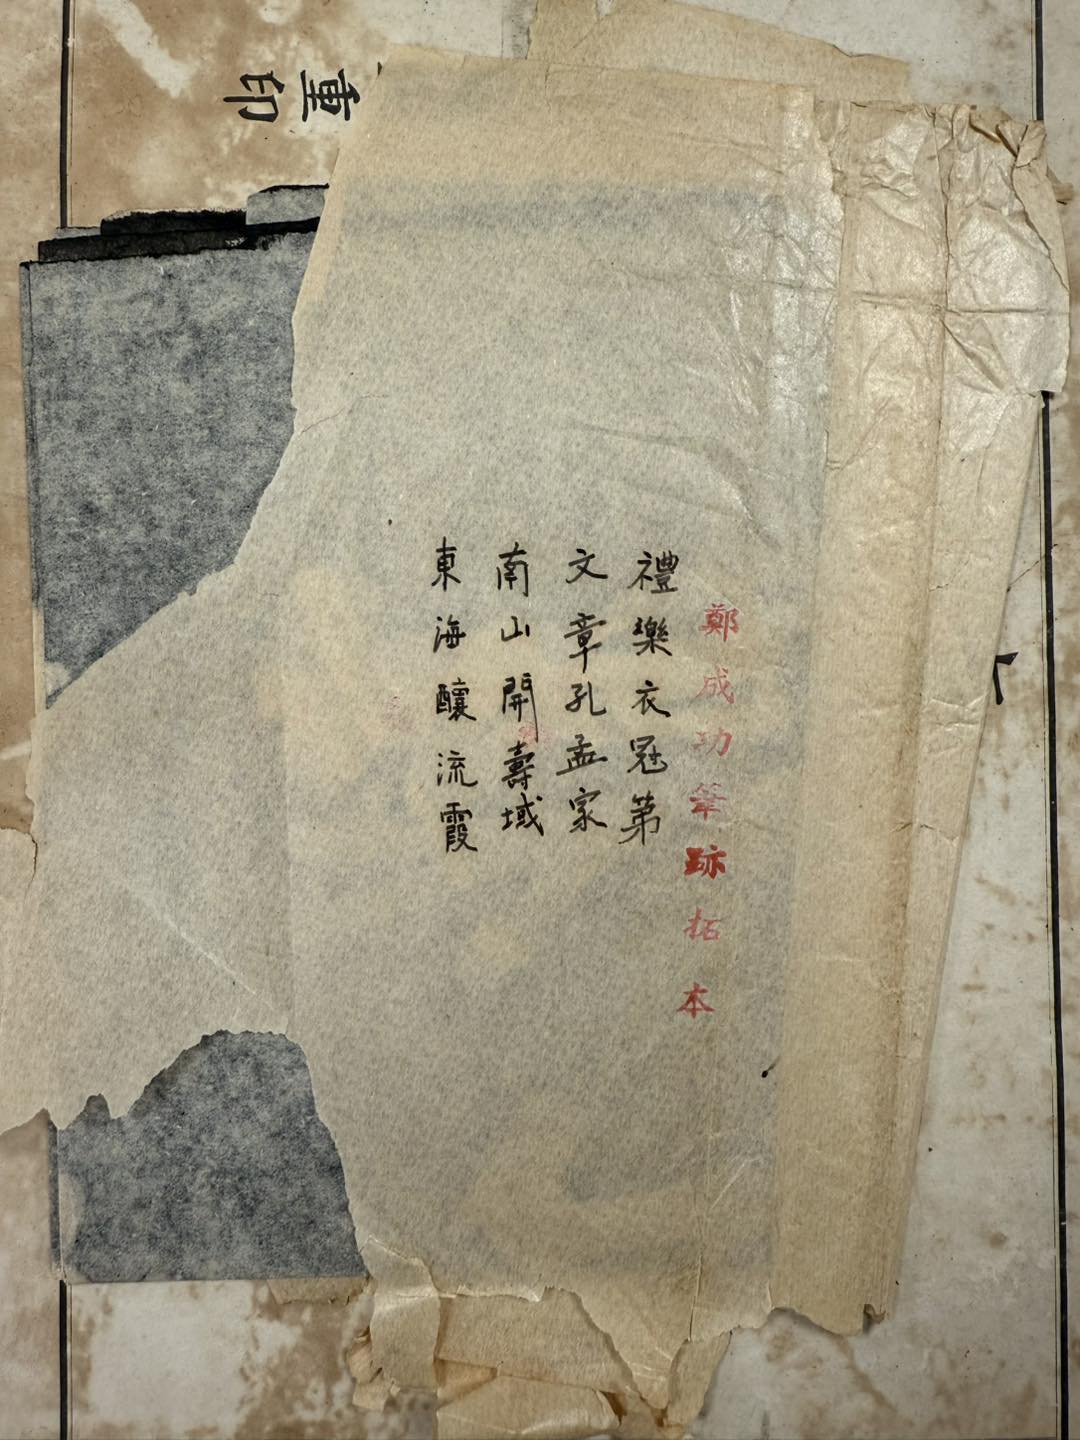 鄭成功筆跡拓本
禮樂衣冠第
文章孔孟家
南山開壽域
東海釀流霞
重印